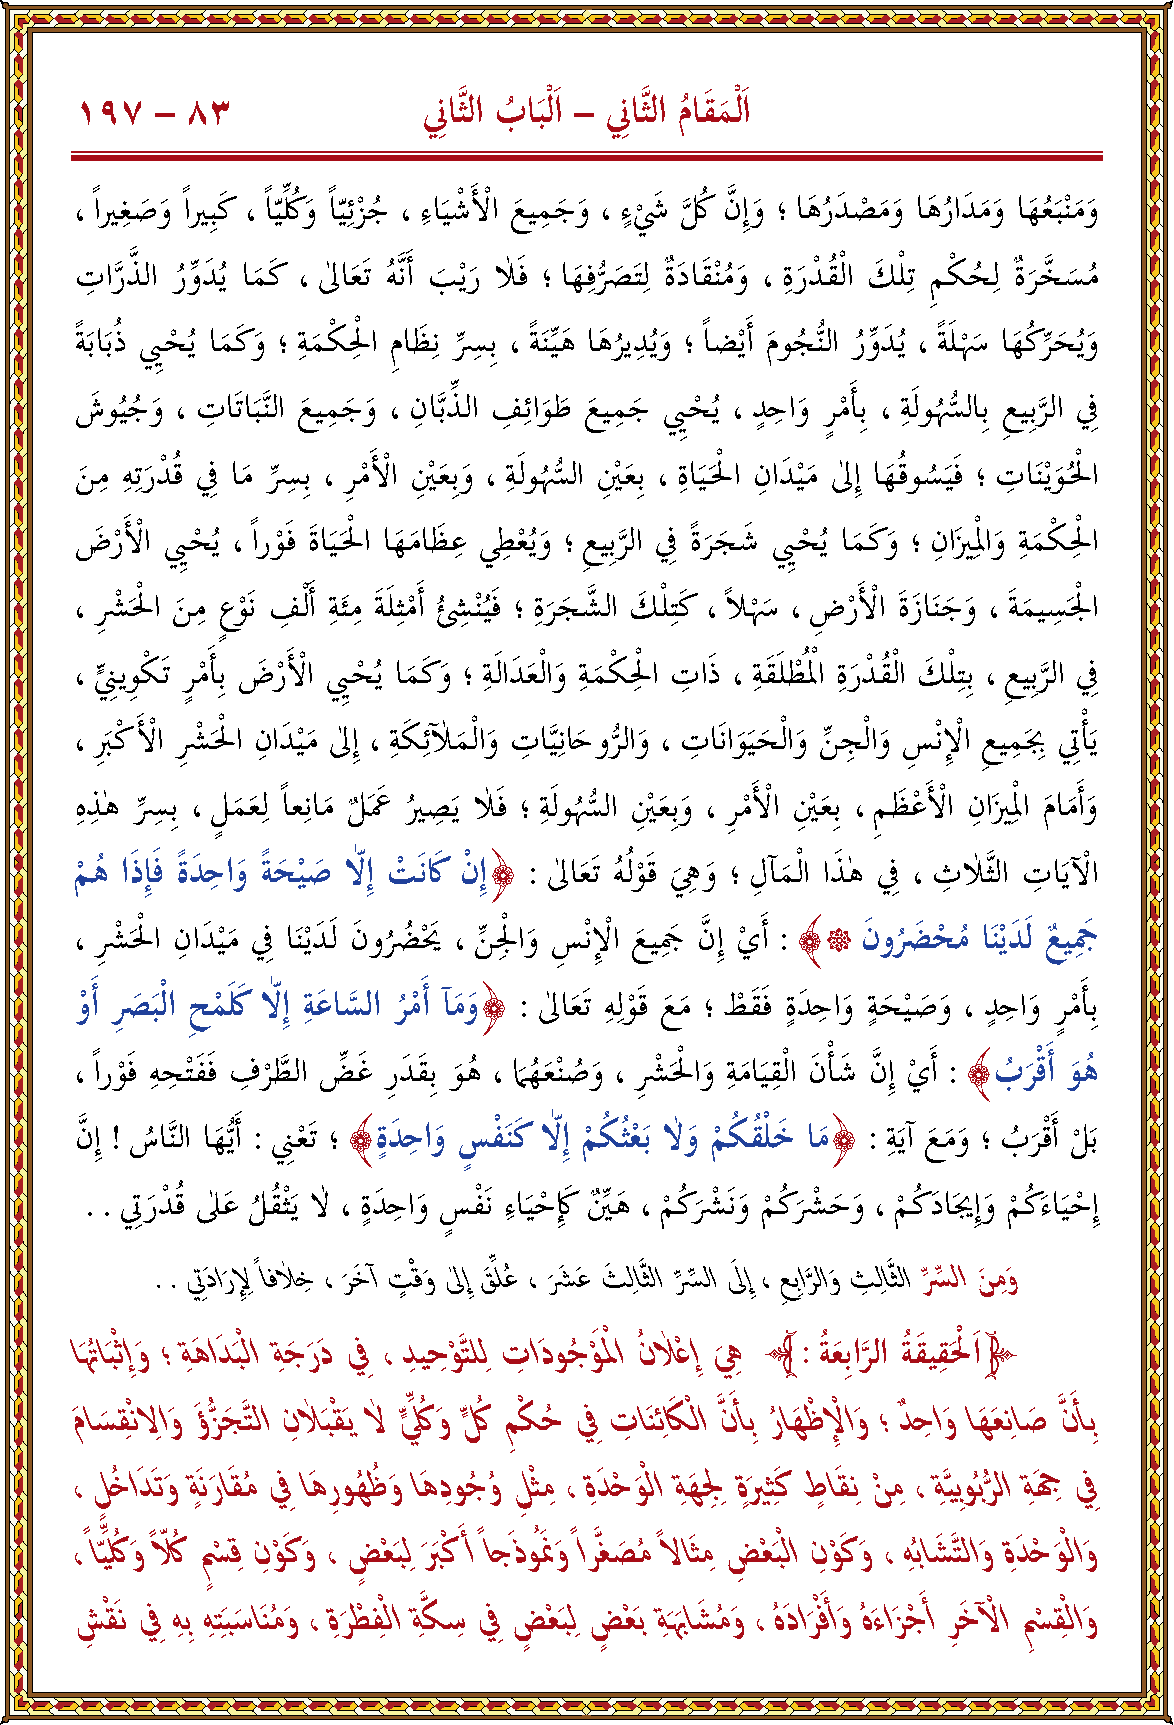 اَلْمَقَامُ الثَّانِي – اَلْبَابُ الثَّانِي ٨٣ – ١٩٧
وَمَنْبَعُهَا وَمَدَارُهَا وَمَصْدَرُهَا ؛ وَإِنَّ كُلَّ شَيْءٍ ، وَجَمِيعَ الْأَشْيَاءِ ، جُزْئِيّاً وَكُلِّيّاً ، كَبِيراً وَصَغِيراً ،
مُسَخَّرَةٌ لِحُكْمِ تِلْكَ الْقُدْرَةِ ، وَمُنْقَادَةٌ لِتَصَرُّفِهَا ؛ فَلَا رَيْبَ أَنَّهُ تَعَالٰى ، كَمَا يُدَوِّرُ الذَّرَّاتِ
وَيُحَرِّكُهَا سَهْلَةً ، يُدَوِّرُ النُّجُومَ أَيْضاً ؛ وَيُدِيرُهَا هَيِّنَةً ، بِسِرِّ نِظَامِ الْحِكْمَةِ ؛ وَكَمَا يُحْيِي ذُبَابَةً
فِي الرَّبِيعِ بِالسُّهُولَةِ ، بِأَمْرٍ وَاحِدٍ ، يُحْيِي جَمِيعَ طَوَائِفِ الذِّبَّانِ ، وَجَمِيعَ النَّبَاتَاتِ ، وَجُيُوشَ
الْحُوَيْنَاتِ ؛ فَيَسُوقُهَا إِلٰى مَيْدَانِ الْحَيَاةِ ، بِعَيْنِ السُّهُولَةِ ، وَبِعَيْنِ الْأَمْرِ ، بِسِرِّ مَا فِي قُدْرَتِهِ مِنَ
الْحِكْمَةِ وَالْمِيزَانِ ؛ وَكَمَا يُحْيِي شَجَرَةً فِي الرَّبِيعِ ؛ وَيُعْطِي عِظَامَهَا الْحَيَاةَ فَوْراً ، يُحْيِي الْأَرْضَ
الْجَسِيمَةَ ، وَجَنَازَةَ الْأَرْضِ ، سَهْلاً ، كَتِلْكَ الشَّجَرَةِ ؛ فَيُنْشِئُ أَمْثِلَةَ مِئَةِ أَلْفِ نَوْعٍ مِنَ الْحَشْرِ ،
فِي الرَّبِيعِ ، بِتِلْكَ الْقُدْرَةِ الْمُطْلَقَةِ ، ذَاتِ الْحِكْمَةِ وَالْعَدَالَةِ ؛ وَكَمَا يُحْيِي الْأَرْضَ بِأَمْرٍ تَكْوِينِيٍّ ،
يَأْتِي بِجَمِيعِ الْإِنْسِ وَالْجِنِّ وَالْحَيَوَانَاتِ ، وَالرُّوحَانِيَّاتِ وَالْمَلَآئِكَةِ ، إِلٰى مَيْدَانِ الْحَشْرِ الْأَكْبَرِ ،
وَأَمَامَ الْمِيزَانِ الْأَعْظَمِ ، بِعَيْنِ الْأَمْرِ ، وَبِعَيْنِ السُّهُولَةِ ؛ فَلَا يَصِيرُ عَمَلٌ مَانِعاً لِعَمَلٍ ، بِسِرِّ هٰذِهِ
الْآيَاتِ الثَّلَاثِ ، فِي هٰذَا الْمَآلِ ؛ وَهِيَ قَوْلُهُ تَعَالٰى : ﴿إِنْ كَانَتْ إِلَّا صَيْحَةً وَاحِدَةً فَإِذَا هُمْ
جَمِيعٌ لَدَيْنَا مُحْضَرُونَ ❁﴾ : أَيْ إِنَّ جَمِيعَ الْإِنْسِ وَالْجِنِّ ، يَحْضُرُونَ لَدَيْنَا فِي مَيْدَانِ الْحَشْرِ ،
بِأَمْرٍ وَاحِدٍ ، وَصَيْحَةٍ وَاحِدَةٍ فَقَطْ ؛ مَعَ قَوْلِهِ تَعَالٰى : ﴿وَمَآ أَمْرُ السَّاعَةِ إِلَّا كَلَمْحِ الْبَصَرِ أَوْ
هُوَ أَقْرَبُ﴾ : أَيْ إِنَّ شَأْنَ الْقِيَامَةِ وَالْحَشْرِ ، وَصُنْعَهُمَا ، هُوَ بِقَدَرِ غَضِّ الطَّرْفِ فَفَتْحِهِ فَوْراً ،
بَلْ أَقْرَبُ ؛ وَمَعَ آيَةِ : ﴿مَا خَلْقُكُمْ وَلَا بَعْثُكُمْ إِلَّا كَنَفْسٍ وَاحِدَةٍ﴾ ؛ تَعْنِي : أَيُّهَا النَّاسُ ! إِنَّ
إِحْيَاءَكُمْ وَإِيجَادَكُمْ ، وَحَشْرَكُمْ وَنَشْرَكُمْ ، هَيِّنٌ كَإِحْيَاءِ نَفْسٍ وَاحِدَةٍ ، لَا يَثْقُلُ عَلٰى قُدْرَتِي . .
وَمِنَ السِّرِّ الثَّالِثِ وَالرَّابِعِ ، إِلَى السِّرِّ الثَّالِثَ عَشَرَ ، عُلِّقَ إِلٰى وَقْتٍ آخَرَ ، خِلَافاً لِإِرَادَتِي . .
﴿اَلْحَقِيقَةُ الرَّابِعَةُ :﴾ هِيَ إِعْلَانُ الْمَوْجُودَاتِ لِلتَّوْحِيدِ ، فِي دَرَجَةِ الْبَدَاهَةِ ؛ وَإِثْبَاتُهَا
بِأَنَّ صَانِعَهَا وَاحِدٌ ؛ وَالْإِظْهَارُ بِأَنَّ الْكَائِنَاتِ فِي حُكْمِ كُلٍّ وَكُلِّيٍّ لَا يَقْبَلَانِ التَّجَزُّؤَ وَالِانْقِسَامَ
فِي جِهَةِ الرُّبُوبِيَّةِ ، مِنْ نِقَاطٍ كَثِيرَةٍ لِجِهَةِ الْوَحْدَةِ ، مِثْلِ وُجُودِهَا وَظُهُورِهَا فِي مُقَارَنَةٍ وَتَدَاخُلٍ ،
وَالْوَحْدَةِ وَالتَّشَابُهِ ، وَكَوْنِ الْبَعْضِ مِثَالاً مُصَغَّراً وَنَمُوذَجاً أَكْبَرَ لِبَعْضٍ ، وَكَوْنِ قِسْمٍ كُلّاً وَكُلِّيّاً ،
وَالْقِسْمِ الْآخَرِ أَجْزَاءَهُ وَأَفْرَادَهُ ، وَمُشَابَهَةِ بَعْضٍ لِبَعْضٍ فِي سِكَّةِ الْفِطْرَةِ ، وَمُنَاسَبَتِهِ بِهِ فِي نَقْشِ